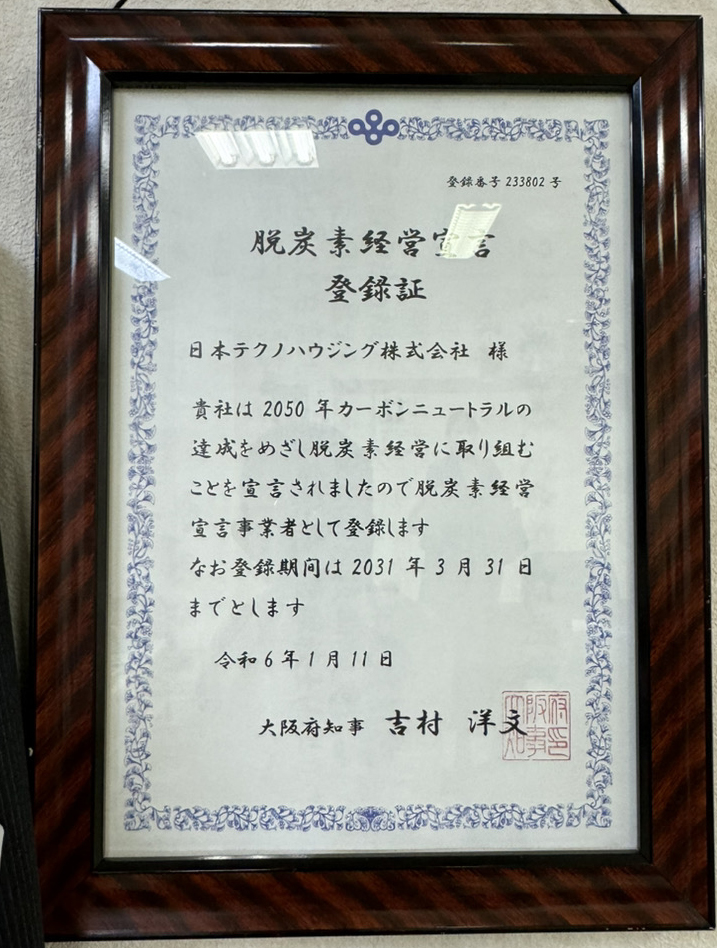 登録番号 233802 号
脱炭素経営宣言
登録証
日本テクノハウジング株式会社 様
貴社は 2050 年カーボンニュートラルの
達成をめざし脱炭素経営に取り組む
ことを宣言されましたので脱炭素経営
宣言事業者として登録します
なお登録期間は 2031 年 3 月 31 日
までとします
令和 6 年 1 月 11 日
大阪府知事 吉村 洋文
大阪府知事印